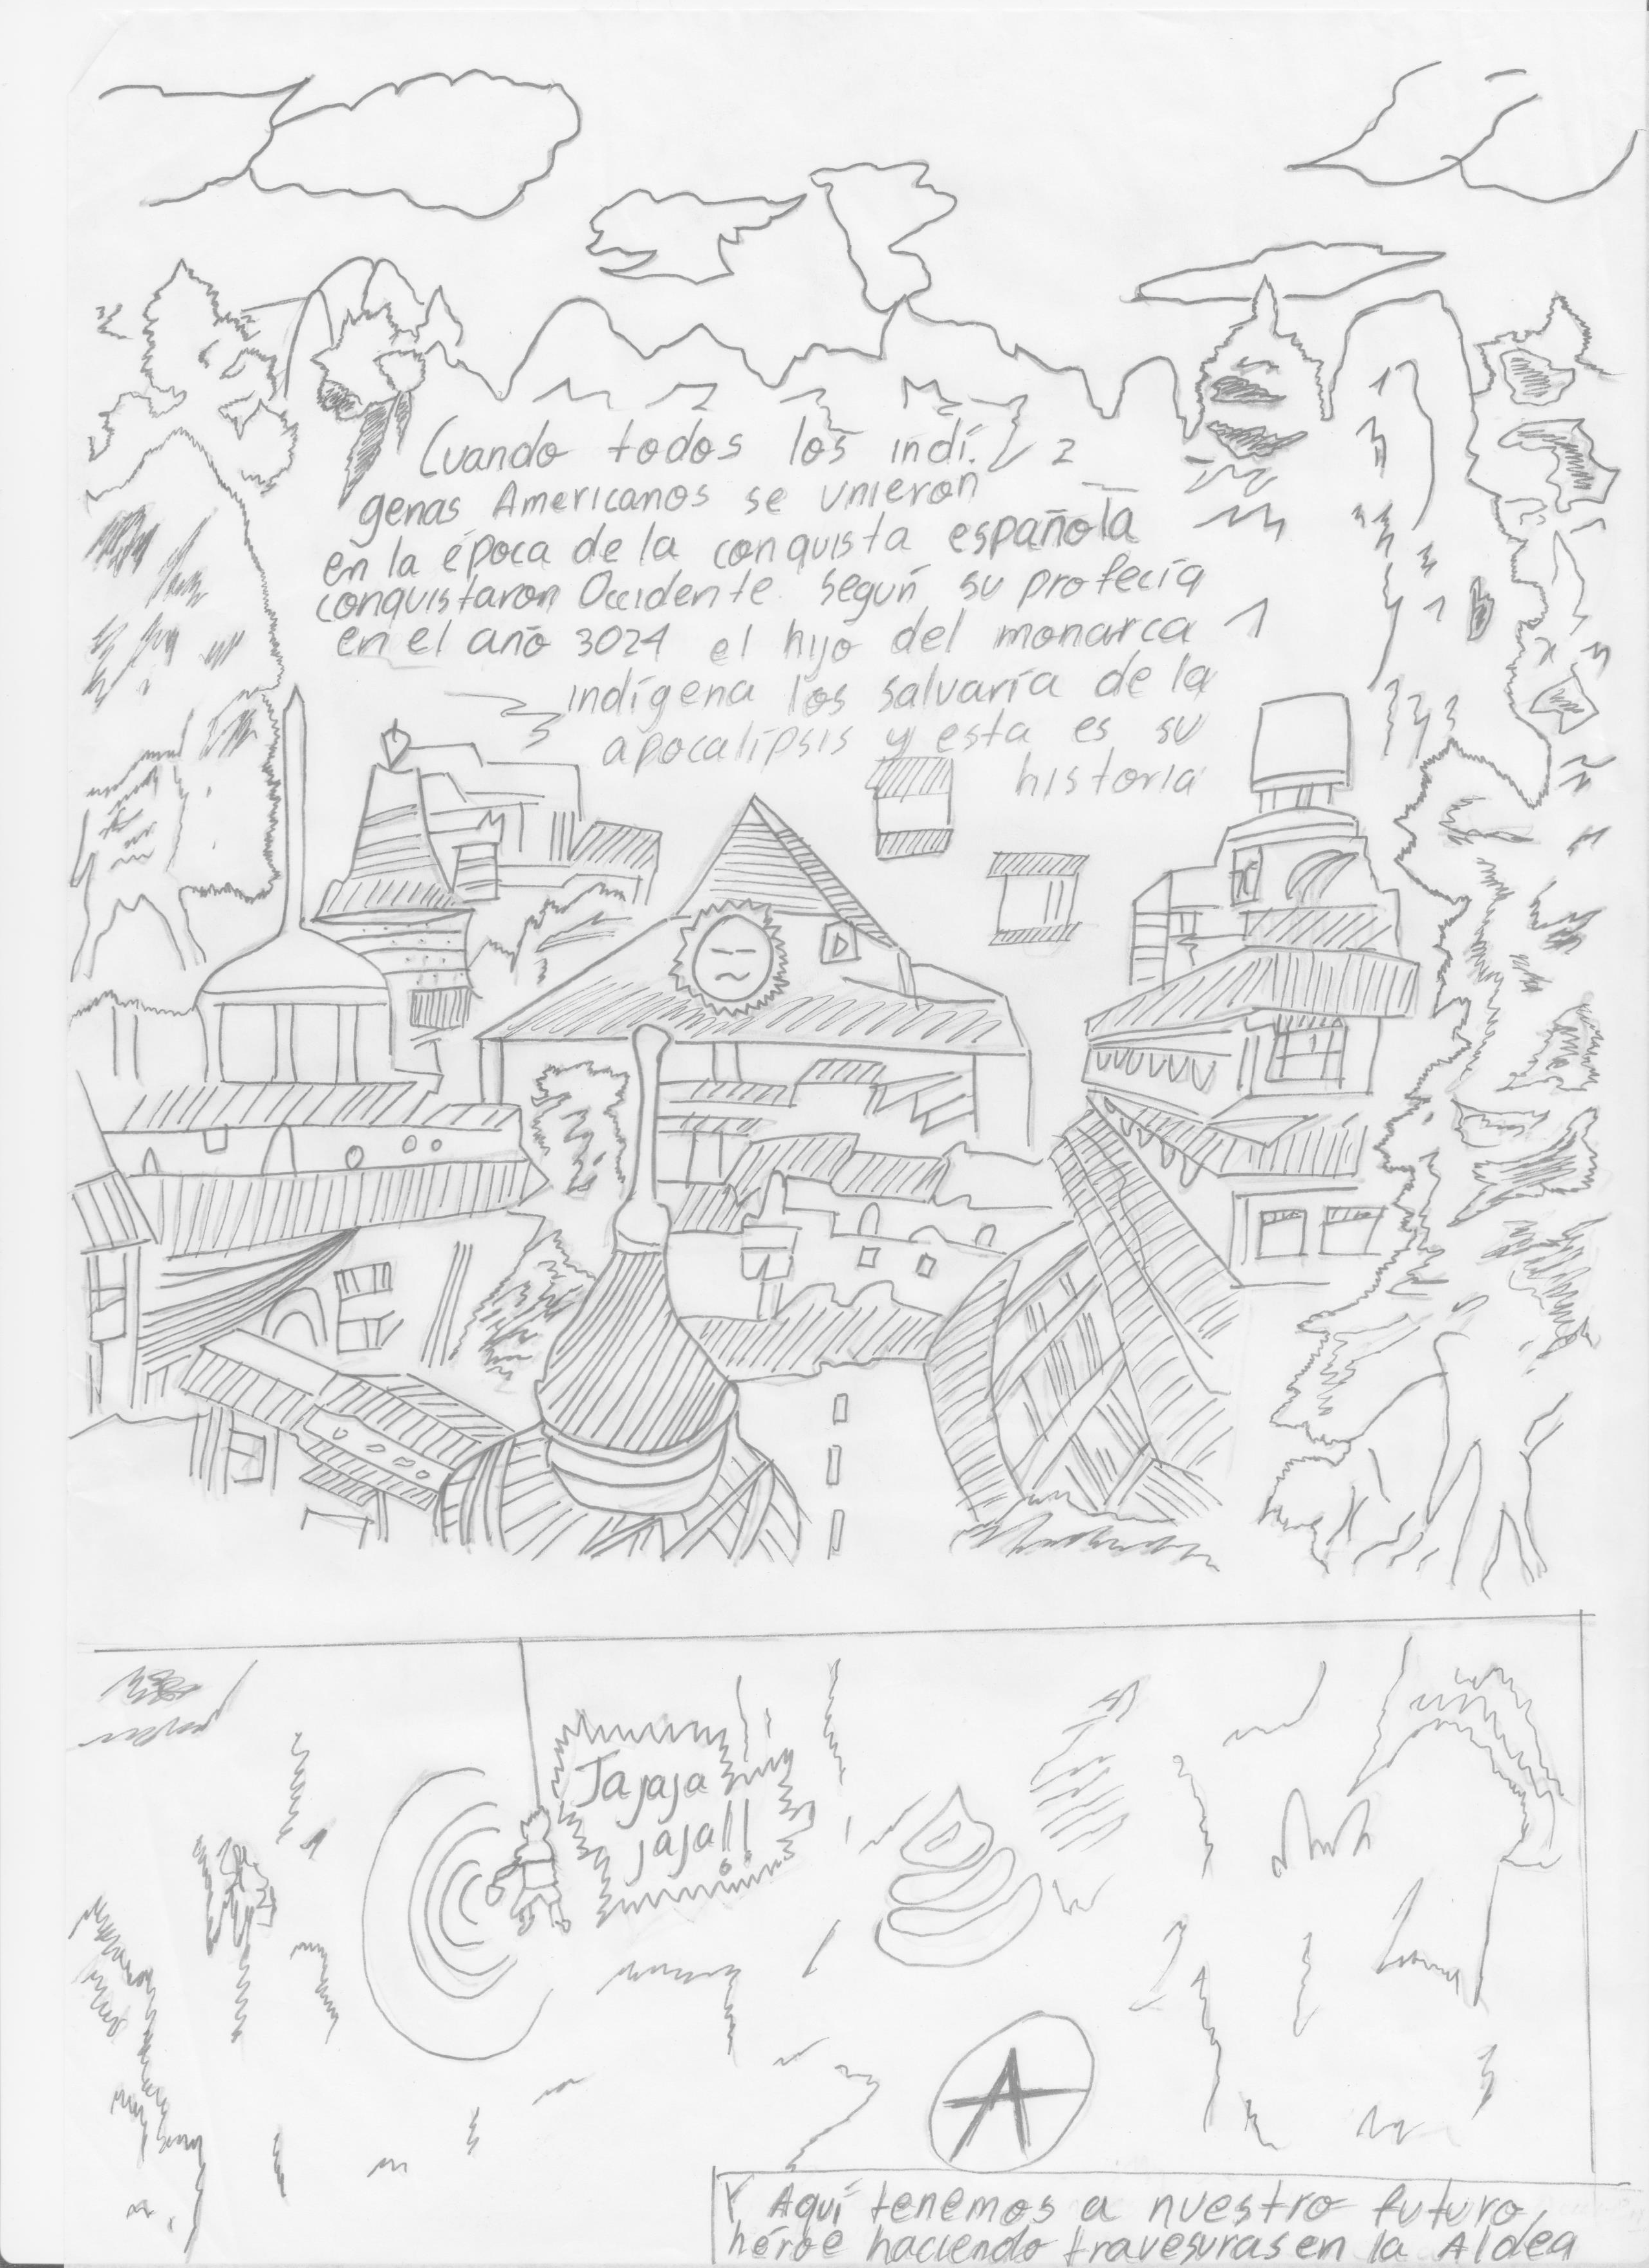 Cuando todos los indí.
genas Americanos se unieron
en la época de la conquista española
conquistaron Occidente. Según su profecía
en el año 3024 el hijo del monarca
indígena los salvaría de la
apocalípsis y esta es su
historia
Jajaja
jaja!!
A
Y Aquí tenemos a nuestro futuro
héroe haciendo travesuras en la Aldea